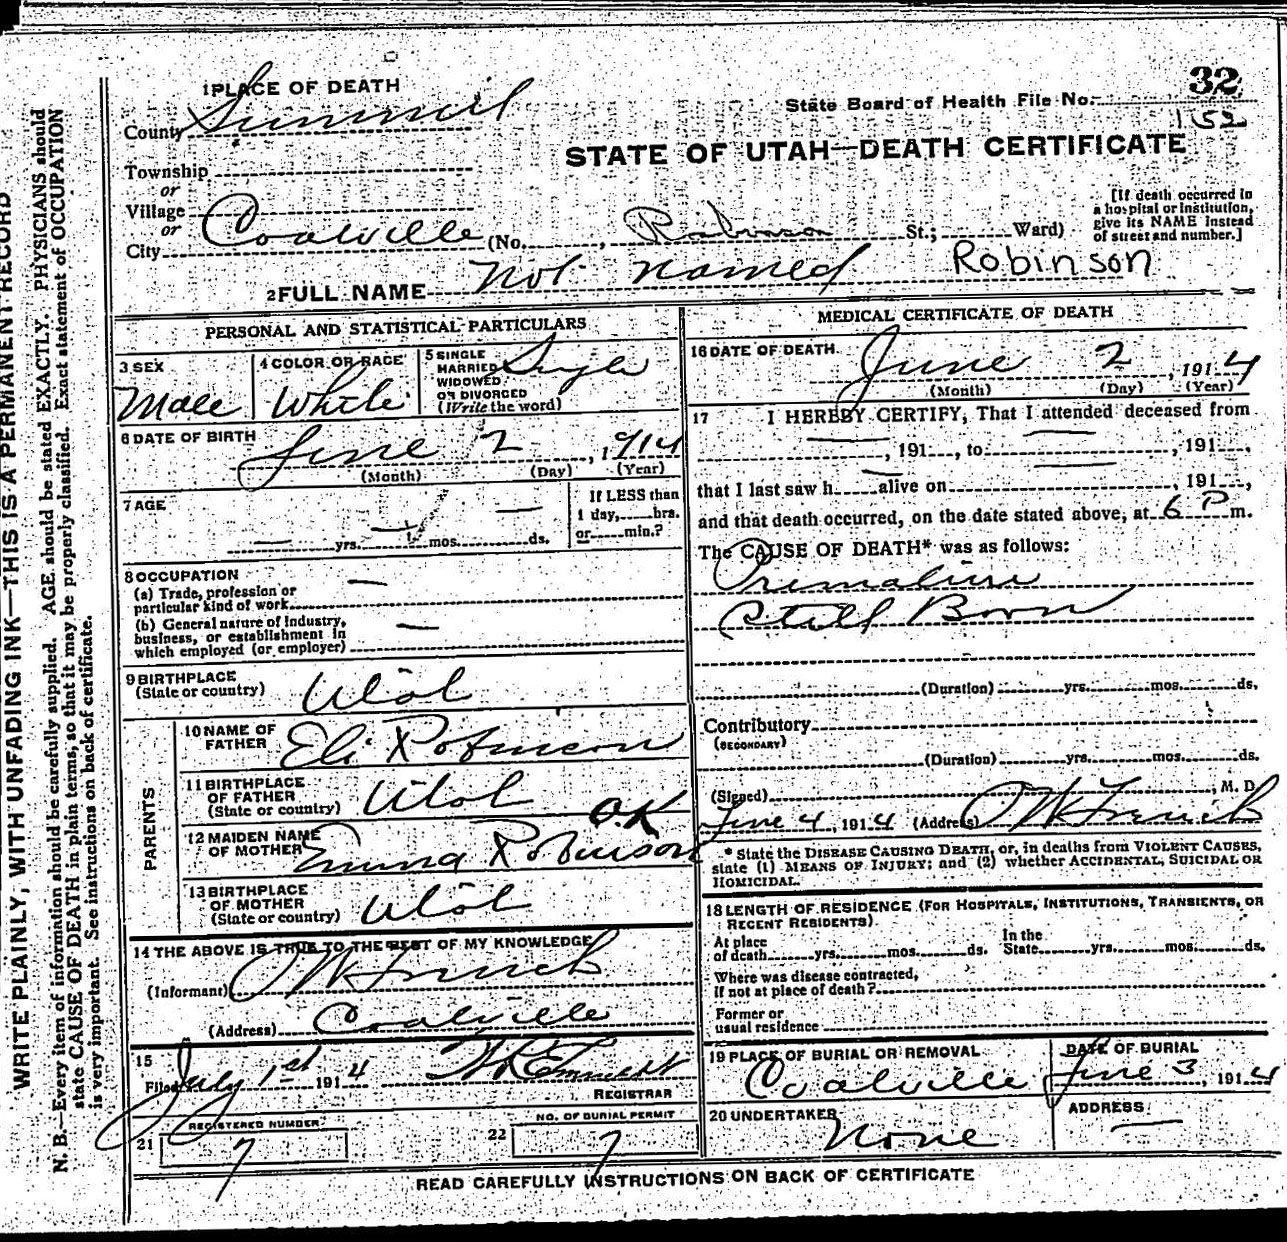 32
1 PLACE OF DEATH
State Board of Health File No.
152
County Summit
STATE OF UTAH—DEATH CERTIFICATE
Township
or
Village
or
City Coalville (No. , Robinson St.; Ward)
[If death occurred in
a hospital or institution,
give its NAME instead
of street and number.]
2 FULL NAME Not named Robinson
PERSONAL AND STATISTICAL PARTICULARS
3 SEX
Male
4 COLOR OR RACE
White
5 SINGLE
MARRIED
WIDOWED
OR DIVORCED
(Write the word)
Single
6 DATE OF BIRTH
June 2, 1914
(Month) (Day) (Year)
7 AGE
— yrs. — mos. — ds.
If LESS than
1 day, hrs.
or min.?
8 OCCUPATION
(a) Trade, profession or
particular kind of work —
(b) General nature of industry,
business, or establishment in
which employed (or employer) —
9 BIRTHPLACE
(State or country)
Utah
PARENTS
10 NAME OF
FATHER Eli Robinson
11 BIRTHPLACE
OF FATHER
(State or country) Utah
O.K
12 MAIDEN NAME
OF MOTHER Emma Robinson
13 BIRTHPLACE
OF MOTHER
(State or country) Utah
14 THE ABOVE IS TRUE TO THE BEST OF MY KNOWLEDGE
(Informant)
(Address) Coalville
15
Filed July 1st 1914
REGISTRAR
REGISTERED NUMBER
21 7
NO. OF BURIAL PERMIT
22 7
MEDICAL CERTIFICATE OF DEATH
16 DATE OF DEATH
June 2, 1914
(Month) (Day) (Year)
17 I HEREBY CERTIFY, That I attended deceased from
—, 191 , to —, 191 ,
that I last saw h — alive on —, 191 ,
and that death occurred, on the date stated above, at 6 P m.
The CAUSE OF DEATH* was as follows:
Premature
Still Born
(Duration) yrs. mos. ds.
Contributory
(SECONDARY)
(Duration) yrs. mos. ds.
(Signed) , M. D.
June 4, 1914 (Address)
* State the DISEASE CAUSING DEATH, or, in deaths from VIOLENT CAUSES,
state (1) MEANS OF INJURY; and (2) whether ACCIDENTAL, SUICIDAL OR
HOMICIDAL.
18 LENGTH OF RESIDENCE (FOR HOSPITALS, INSTITUTIONS, TRANSIENTS, OR
RECENT RESIDENTS)
At place
of death yrs. mos. ds.
In the
State yrs. mos. ds.
Where was disease contracted,
if not at place of death?
Former or
usual residence
19 PLACE OF BURIAL OR REMOVAL
Coalville
DATE OF BURIAL
June 3, 1914
20 UNDERTAKER
None
ADDRESS
—
READ CAREFULLY INSTRUCTIONS ON BACK OF CERTIFICATE
WRITE PLAINLY, WITH UNFADING INK—THIS IS A PERMANENT RECORD
N. B.—Every item of information should be carefully supplied. AGE should be stated EXACTLY. PHYSICIANS should
state CAUSE OF DEATH in plain terms, so that it may be properly classified. Exact statement of OCCUPATION
is very important. See instructions on back of certificate.